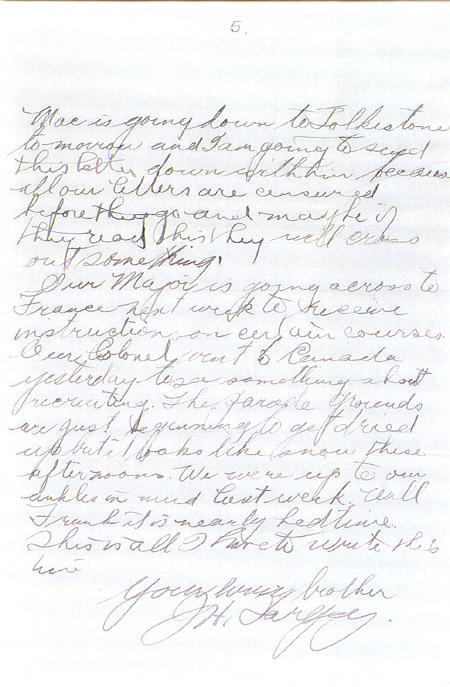 5.
Mac is going down to Folkestone
to-morrow and I am going to send
this letter down with him because
all our letters are censured
before they go and maybe if
they read this they will cross
out something.
Our Major is going across to
France next week to receive
instruction on certain courses.
Our Colonel went to Canada
yesterday to see something about
recruiting. The parade grounds
are just beginning to get dried
up but it looks like snow these
afternoons. We were up to our
ankles in mud last week. Well
Frank it is nearly bedtime.
This is all I have to write this
time
Your loving brother
J.H.